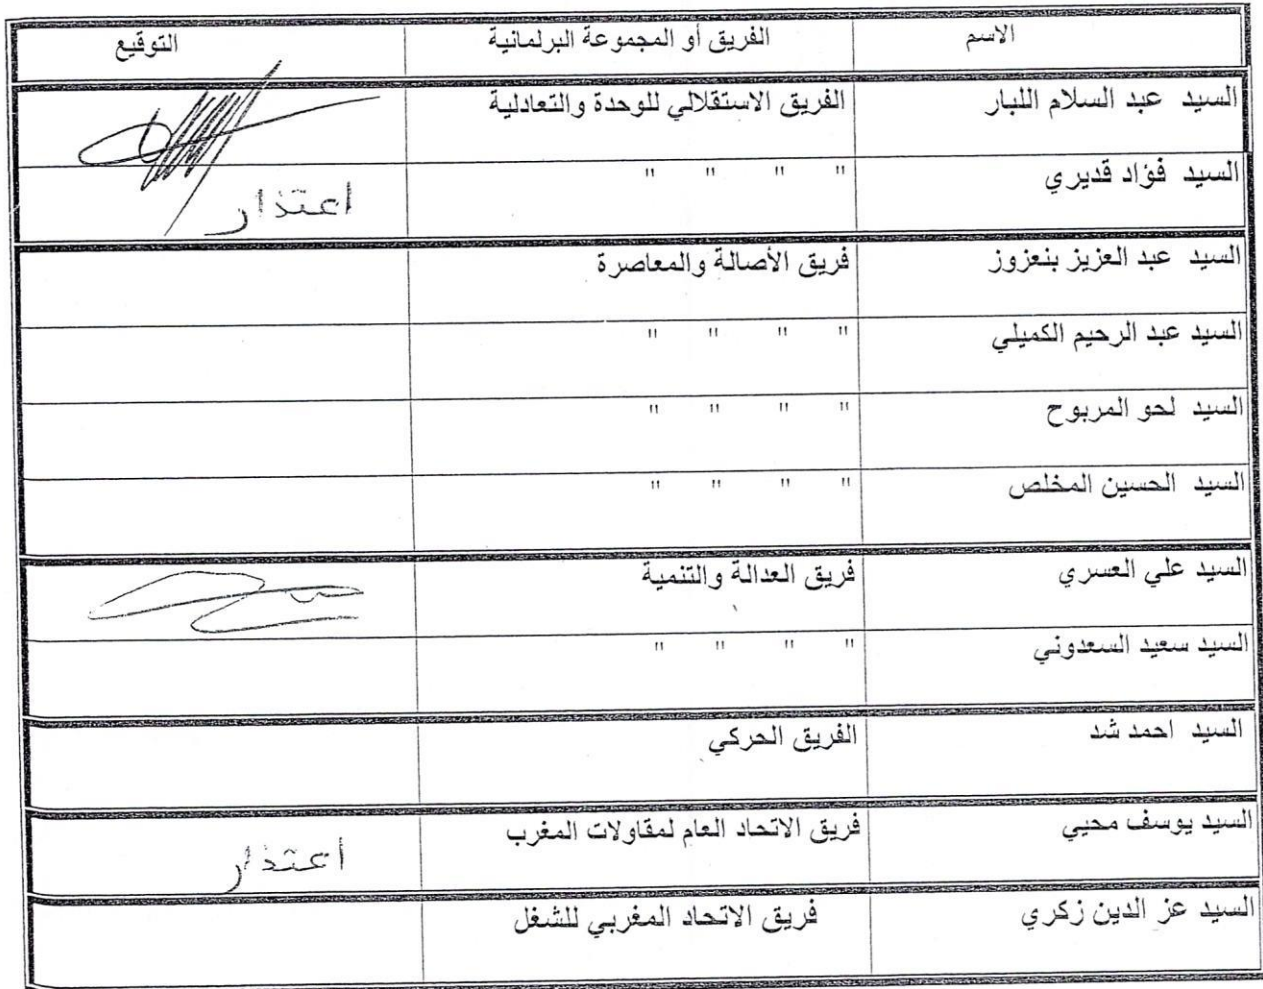 الاسم الفريق أو المجموعة البرلمانية التوقيع
السيد عبد السلام اللبار الفريق الاستقلالي للوحدة والتعادلية
السيد فؤاد قديري " " " " اعتذار
السيد عبد العزيز بنعزوز فريق الأصالة والمعاصرة
السيد عبد الرحيم الكميلي " " " "
السيد لحو المربوح " " " "
السيد الحسين المخلص " " " "
السيد علي العسري فريق العدالة والتنمية
السيد سعيد السعدوني " " " "
السيد احمد شد الفريق الحركي
السيد يوسف محيي فريق الاتحاد العام لمقاولات المغرب أعتذار
السيد عز الدين زكري فريق الاتحاد المغربي للشغل